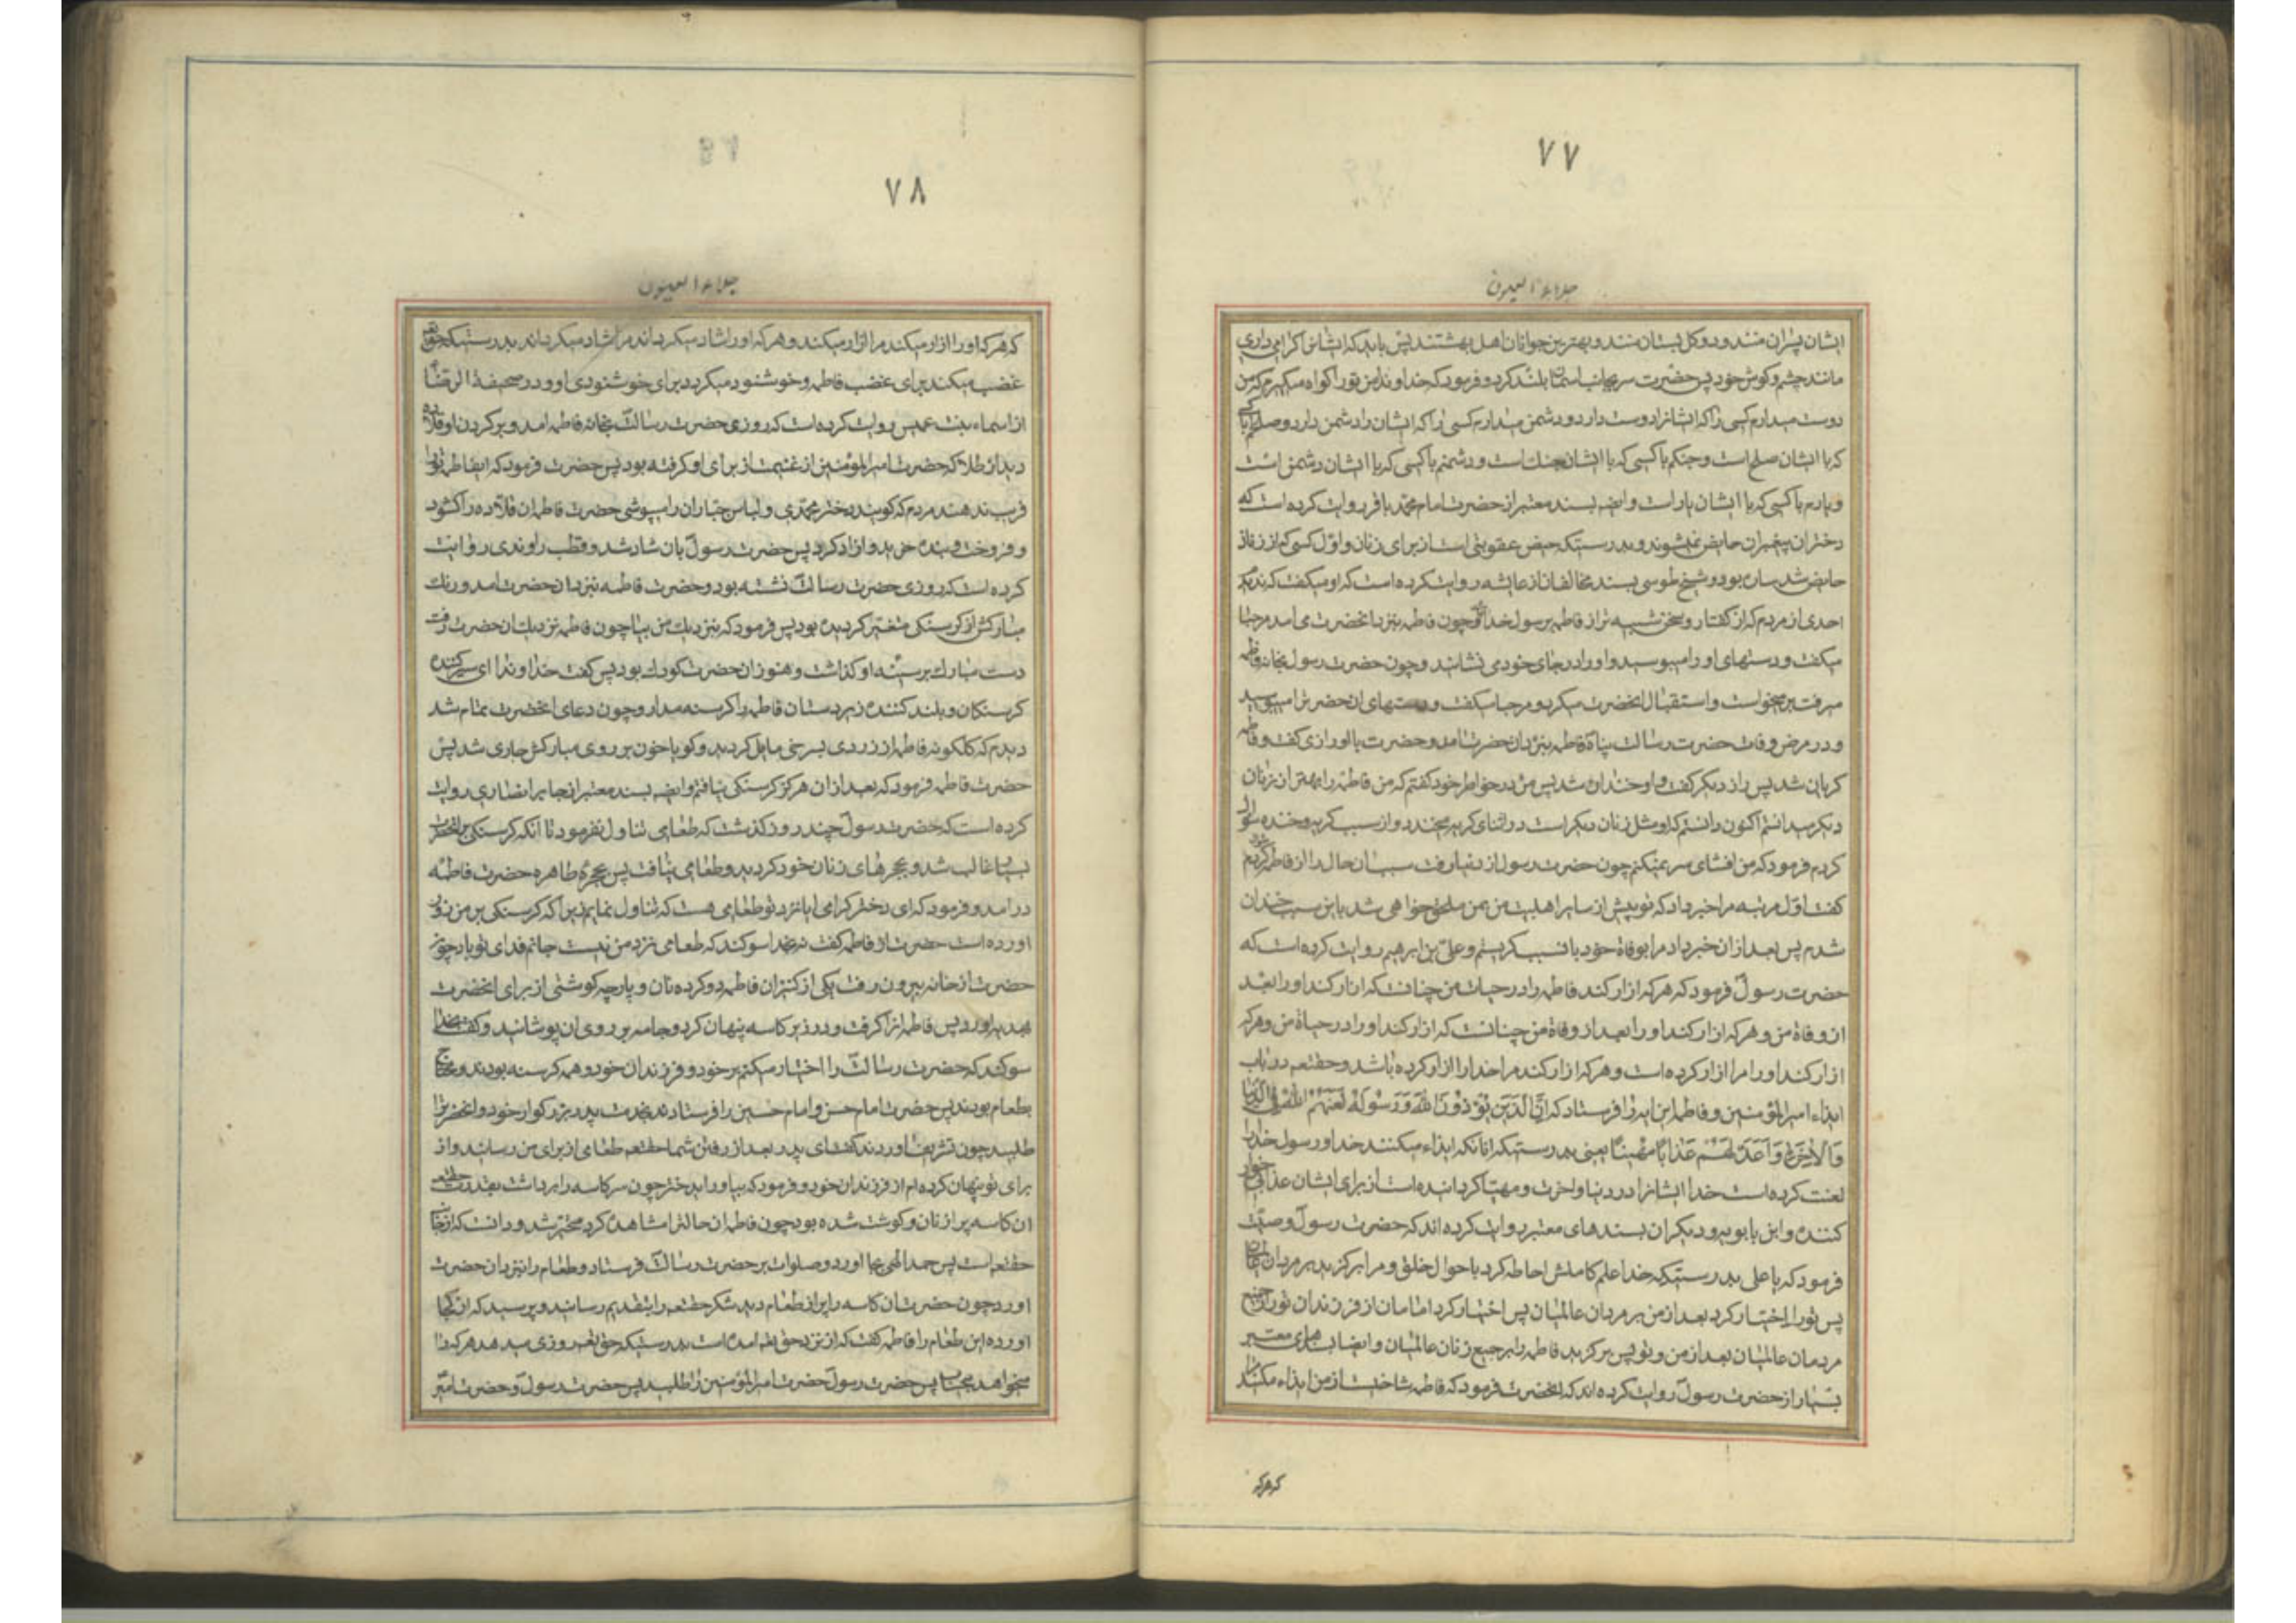 ۷۷
جلاء العیون
ایشان پسران منند و دو کل بستان منند و بهترین جوانان اهل بهشتند پس باید که ایشانرا کرامی داری
مانند چشم و کوش خود پس حضرت سر بجانب اسمان بلند کرد و فرمود که خداوندا من تورا کواه میکیرم که من
دوست میدارم کسی را که ایشانرا دوست دارد و دشمن میدارم کسی را که ایشان را دشمن دارد و صلحم با کسی
که با ایشان صلح است و جنکم با کسی که با ایشان جنک است و دشمنم با کسی که با ایشان دشمن است
و یارم با کسی که با ایشان یار است وایضه بسند معتبر از حضرت امام محمد باقر روایت کرده است که
دختران پیغبران حایض نمیشوند و بدرستیکه حیض عقوبتی است از برای زنان و اول کسی که از زنان
حایض شد ساره بود و شیخ طوسی بسند مخالفان از عایشه روایت کرده است که او میکفت که ندیدم
احدی از مردم که از کفتار و سخن شبیه تر از فاطمه برسول خدا چون فاطمه بنزد انحضرت می امد مرحبا
میکفت و دستهای او را میبوسید و او را در جای خود می نشانید و چون حضرت رسول بخانه فاطمه
میرفت بر میخواست و استقبال انحضرت میکرد و مرحبا میکفت و دستهای ان حضرترا میبوسید
و در مرض وفات حضرت رسالت پناه فاطمه بنزد ان حضرت امد و حضرت با او رازی کفت و فاطمه
کریان شد پس راز دیکر کفت و او خندان شد پس من در خواطر خود کفتم که من فاطمه را بهتر از زنان
دیکر میدانستم اکنون دانستم که او مثل زنان دیکر است در اثنای کریه میخندد و از سبب کریه و خنده سوال
کردم فرمود که من افشای سر نمیکنم چون حضرت رسول از دنیا رفت سبب ان حال را از فاطمه پرسیدم
کفت اول مرتبه مرا خبر داد که تو پیش از سایر اهلبیت من بمن ملحق خواهی شد باین سبب خندان
شدم پس بعد از ان خبر داد مرا بوفاة خود بانسبب کریستم و علی بن ابرهیم روایت کرده است که
حضرت رسول فرمود که هر که ازار کند فاطمه را در حیات من چنانست که ازار کند او را بعد
از وفاة من و هر که ازار کند او را بعد از وفاة من چنانست که ازار کند او را در حیاة من و هر که
ازار کند او را مرا ازار کرده است و هر که ازار کند مرا خدا را ازار کرده باشد و حقتعم در باب
ایذاء امیر المؤمنین و فاطمه این ایه را فرستاد که اِنَّ الَّذینَ یُؤذُونَ اللهَ وَ رَسُولَهُ لَعَنَهُمُ اللهُ فِی الدُّنیا
وَالْاخِرَةِ وَ اَعَدَّ لَهُمْ عَذاباً مُهیناً یعنی بدرستیکه انانکه ایذاء میکنند خدا و رسول خدا را
لعنت کرده است خدا ایشانرا در دنیا و اخرت و مهیا کردانیده است از برای ایشان عذابی خوار
کننده و ابن بابویه و دیکران بسندهای معتبر روایت کرده اند که حضرت رسول وصیت
فرمود که یا علی بدرستیکه خدا علم کاملش احاطه کرد باحوال خلق و مرا برکزید بر مردان عالمیان
پس تورا اختیار کرد بعد از من بر مردان عالمیان پس اختیار کرد امامان از فرزندان تورا بر جمیع
مردمان عالمیان بعد از من و تو پس برکزید فاطمه را بر جمیع زنان عالمیان و ایضا بسندهای معتبر
بسیار از حضرت رسول روایت کرده اند که انحضرت فرمود که فاطمه شاخیست از من ایذاء میکند مرا
که هر که
۷۸
جلاء العیون
که هر که او را ازار میکند مرا ازار میکند و هر که او را شاد میکرداند مرا شاد میکرداند بدرستیکه حقتعم
غضب میکند برای غضب فاطمه و خوشنود میکردد برای خوشنودی او و در صحیفة الرضا
از اسماء بنت عمیس روایت کرده است که روزی حضرت رسالت بخانه فاطمه امد و بر کردن او قلاده
دید از طلا که حضرت امیر المؤمنین از غنیمت از برای او کرفته بود پس حضرت فرمود که ایفاطمه تورا
فریب ندهند مردم که کویند دختر محمدی و لباس جباران را میپوشی حضرت فاطمه ان قلاده را کشود
و فروخت و بنده خرید و ازاد کرد پس حضرت رسول بان شاد شد و قطب راوندی روایت
کرده است که روزی حضرت رسالت نشسته بود و حضرت فاطمه بنزد ان حضرت امد و رنک
مبارکش از کرسنکی متغیر کردیده بود پس فرمود که بنزدیک من بیا چون فاطمه نزدیک ان حضرت رفت
دست مبارک بر سینه او کذاشت و هنوز ان حضرت کودک بود پس کفت خداوندا ای سیر کننده
کرسنکان و بلند کننده زیردستان فاطمه را کرسنه مدار و چون دعای انحضرت تمام شد
دیدم که کلکونه فاطمه از زردی بسرخی مایل کردید و کویا خون بر روی مبارکش جاری شد پس
حضرت فاطمه فرمود که بعد از ان هرکز کرسنکی نیافتم وایضه بسند معتبر از جابر انصاری روایت
کرده است که حضرت رسول چند روز کذشت که طعامی تناول نفرمود تا انکه کرسنکی بر انحضرت
بسیار غالب شد و بحجرهای زنان خود کردید و طعامی نیافت پس بحجرهٔ طاهره حضرت فاطمه
در امد و فرمود که ای دختر کرامی ایا نزد تو طعامی هست که تناول نمایم زیرا که کرسنکی بر من زور
اورده است حضرت فاطمه کفت نه بخدا سوکند که طعامی نزد من نیست جانم فدای تو باد چون
حضرت از خانه بیرون رفت یکی از کنیزان فاطمه دو کرده نان و پارچه کوشتی از برای انحضرت
بهدیه اورد پس فاطمه انرا کرفت و در زیر کاسه پنهان کرد و جامه بر روی ان پوشانید و کفت بخدا
سوکند که حضرت رسالت را اختیار میکنم بر خود و فرزندان خود و همه کرسنه بودند و محتاج
بطعام بودند پس حضرت امام حسن و امام حسین را فرستاد بخدمت پدر بزرکوار خود و انحضرترا
طلبید چون تشریف اوردند کفت ای پدر بعد از رفتن شما حقتعم طعامی از برای من رسانید و از
برای تو پنهان کرده ام از فرزندان خود و فرمود که بیاور ایدختر چون سر کاسه را برداشت بقدرت حقتعم
ان کاسه پر از نان و کوشت شده بود چون فاطمه ان حالترا مشاهده کرد متحیر شد و دانست که از جانب
حقتعم است پس حمد الهی بجا اورد و صلوات بر حضرت رسالت فرستاد و طعام را بنزد ان حضرت
اورد چون حضرت ان کاسه را پر از طعام دید شکر حقتعم را بتقدیم رسانید و پرسید که از کجا
اورده این طعام را فاطمه کفت که از نزد حقتعم امده است بدرستیکه حقتعم روزی میدهد هر که را
میخواهد بیحساب پس حضرت رسول حضرت امیر المؤمنین را طلبید پس حضرت رسول و حضرت امیر